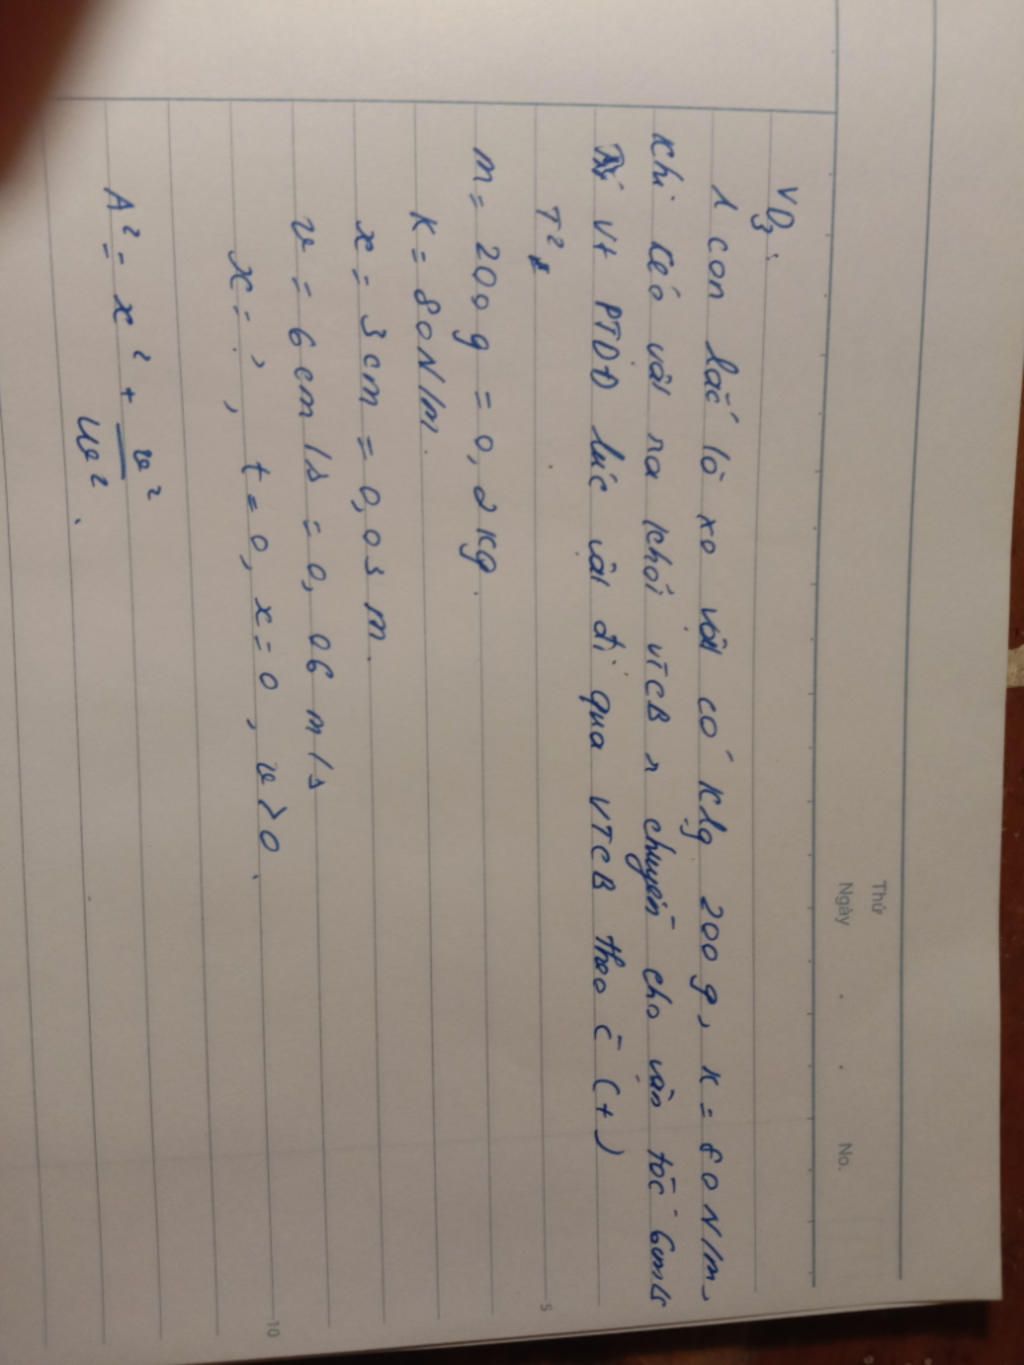 Thứ
Ngày . . No.
VD3:
1 con lắc lò xo vật có klg 200g, k = 80N/m,
khi kéo vật ra khỏi VTCB r chuyển cho vận tốc 6cm/s
vt PTDĐ lúc vật đi qua VTCB theo c (+)
T²
5
m = 200g = 0,2kg.
k = 80N/m.
x = 3cm = 0,03 m.
v = 6cm/s = 0,06 m/s
x = ?, t = 0, x = 0, v > 0.
10
A² = x² + v²/w².